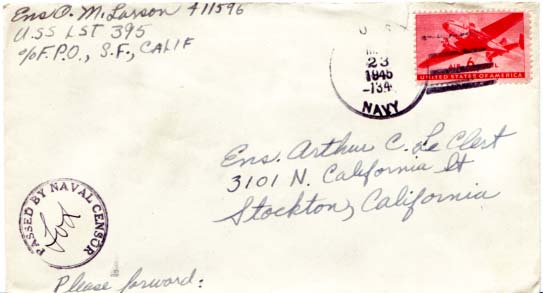 Ens O. M. Larson 411596
USS LST 395
c/o F.P.O., S.F., CALIF
U.S.
23
1945
NAVY
AIR 6¢ MAIL
UNITED STATES OF AMERICA
Ens. Arthur C. LeClert
3101 N. California St
Stockton, California
PASSED BY NAVAL CENSOR
Please forward: